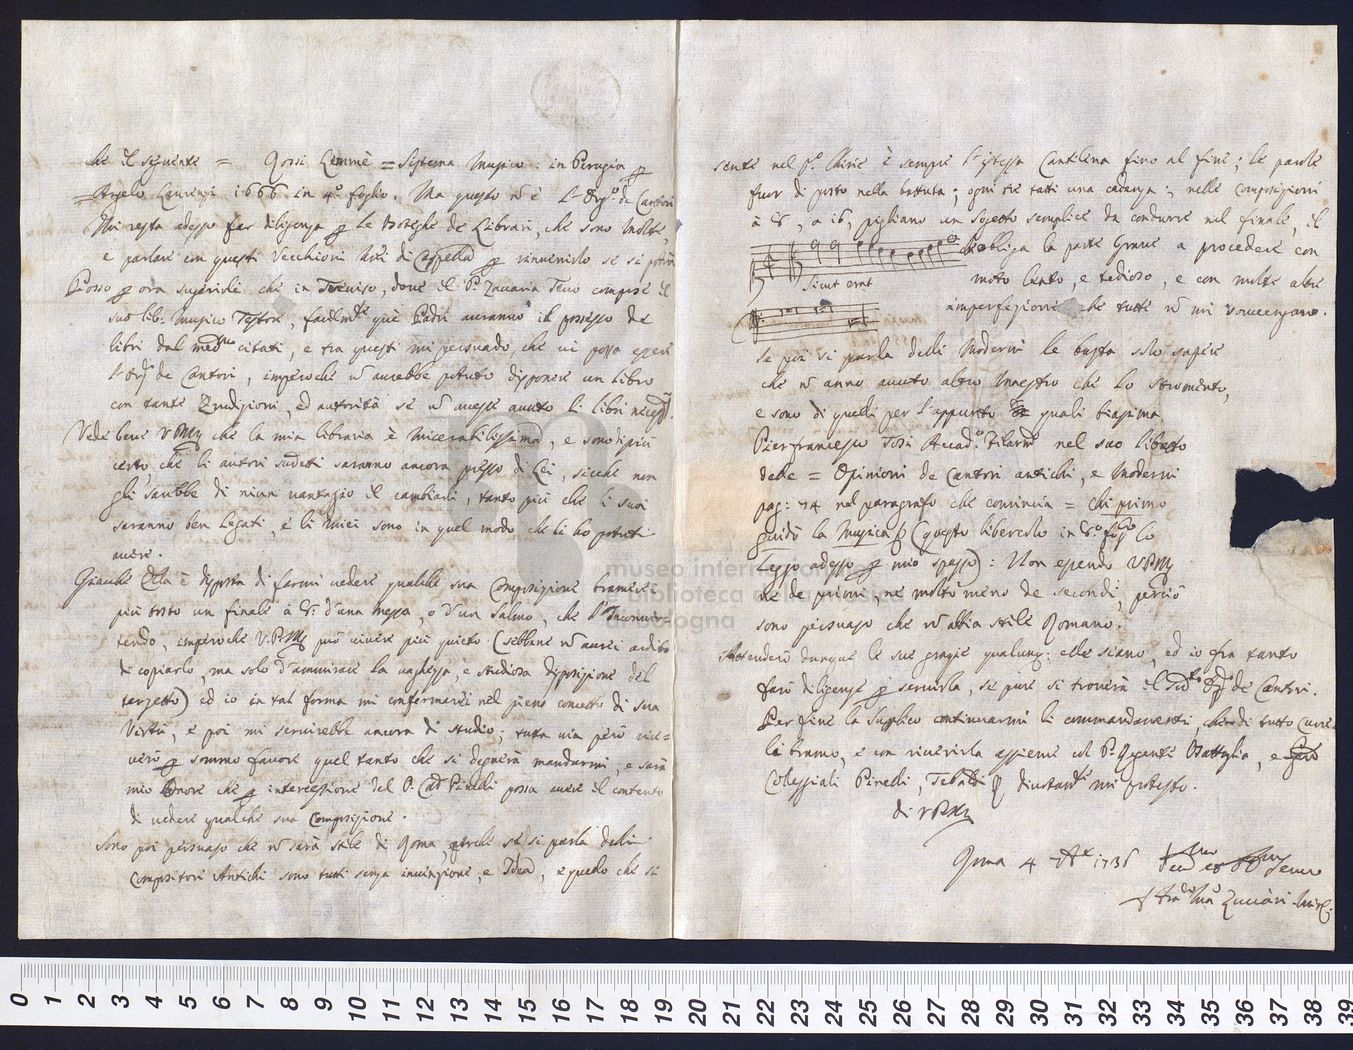 che il seguente = Rossi Lemmè = Sistema Musico: in Perugia per
Angelo Laurenzi 1666 in 4.º foglio. Ma questo nõ è l'Org.º de Cantori
Mi resta adesso far diligenza per le Boteghe de Librari, che sono molte,
e parlare con questi Vecchioni di Cappella per rinvenirlo se si potrà
Posso per ora sugerirle che in Treviso, dove il P. Zaccaria Tevo compose il
suo lib: Musico Testore, facilmte que' Padri avranno il possesso de
libri dal medmo citati, e tra questi mi persuado, che vi possa essere
l'Org de Cantori, imperochè nõ avrebbe potuto disponere un libro
con tante Erudizioni, ed autorità se nõ avesse avuto li libri necessi.
Vede bene VPM che la mia libraria è miserabilissima, e sono di più
certo, che li autori sudetti saranno ancora presso di Lei, sicchè non
gli sarebbe di niun vantagio il cambiarli, tanto più che i suoi
saranno ben legati, e li miei sono in quel modo che li ho potuti
avere.
Giacchè Ella è disposta di farmi vedere qualche sua Composizione bramerei
più tosto un finale à 8: d'una messa, o d'un Salmo, che l'
imperochè V.PM può vivere più quieto (sebbene nõ averei ardito
di copiarlo, ma solo d'ammirare la vaghezza, e studiosa disposizione del
terzetto) ed io in tal forma mi confermarei nel pieno concetto di sua
Virtù, e poi mi servirebbe ancora di studio; tuta via però rice=
verò per sommo favore quel tanto che si degnerà mandarmi, e sarà
mio onore che per intercessione del P. Pirelli possa avere il contento
di vedere qualche sua Composizione.
Sono poi persuaso che nõ sarà stile di Roma, perche se si parla delli
Compositori Antichi sono tutti senza invenzione, e Idea, e quello che si
sente nel p.º Chirie è sempre l'istessa Cantilena fino al fine; le parole
fuor di posto nella battuta; ogni tre tatti una cadenza; nelle Composizioni
à 8, o 16, pigliano un sogetto semplice da condurre nel finale, il
che obliga la parte grave a procedere con
Sicut erat
moto lento, e tedioso, e con molte altre
imperfezioni che tutte nõ mi sovvengono.
Se poi si parla delli Moderni le basta solo sapere
che nõ anno avuto altro Maestro che lo stromento,
e sono di quelli per l'appunto quali biasima
Pierfrancesco Tosi Accad.º Filarmº nel suo libretto
delle = Opinioni de Cantori antichi, e Moderni
pag: 74 nel paragrafo che comincia = chi primo
guidò la Musica (questo libercolo in 8.º lo
leggo adesso per mio spasso): Non essendo VPM
nè de primi, nè molto meno de secondi, perciò
sono persuaso che nõ abbia stile Romano.
Attenderò dunque le sue grazie qualunq: elle siano, ed io fra tanto
farò diligenze per servirla, se pure si troverà il sudto Org de Cantori.
Per fine la supplico continuarmi li commandamenti, che di tutto cuore
li bramo, e con riverirla assieme col P. Regente Battaglia, e
Collegiali Pirelli, Tebaldi mi protesto.
di VPM
Roma 4 7bre 1736